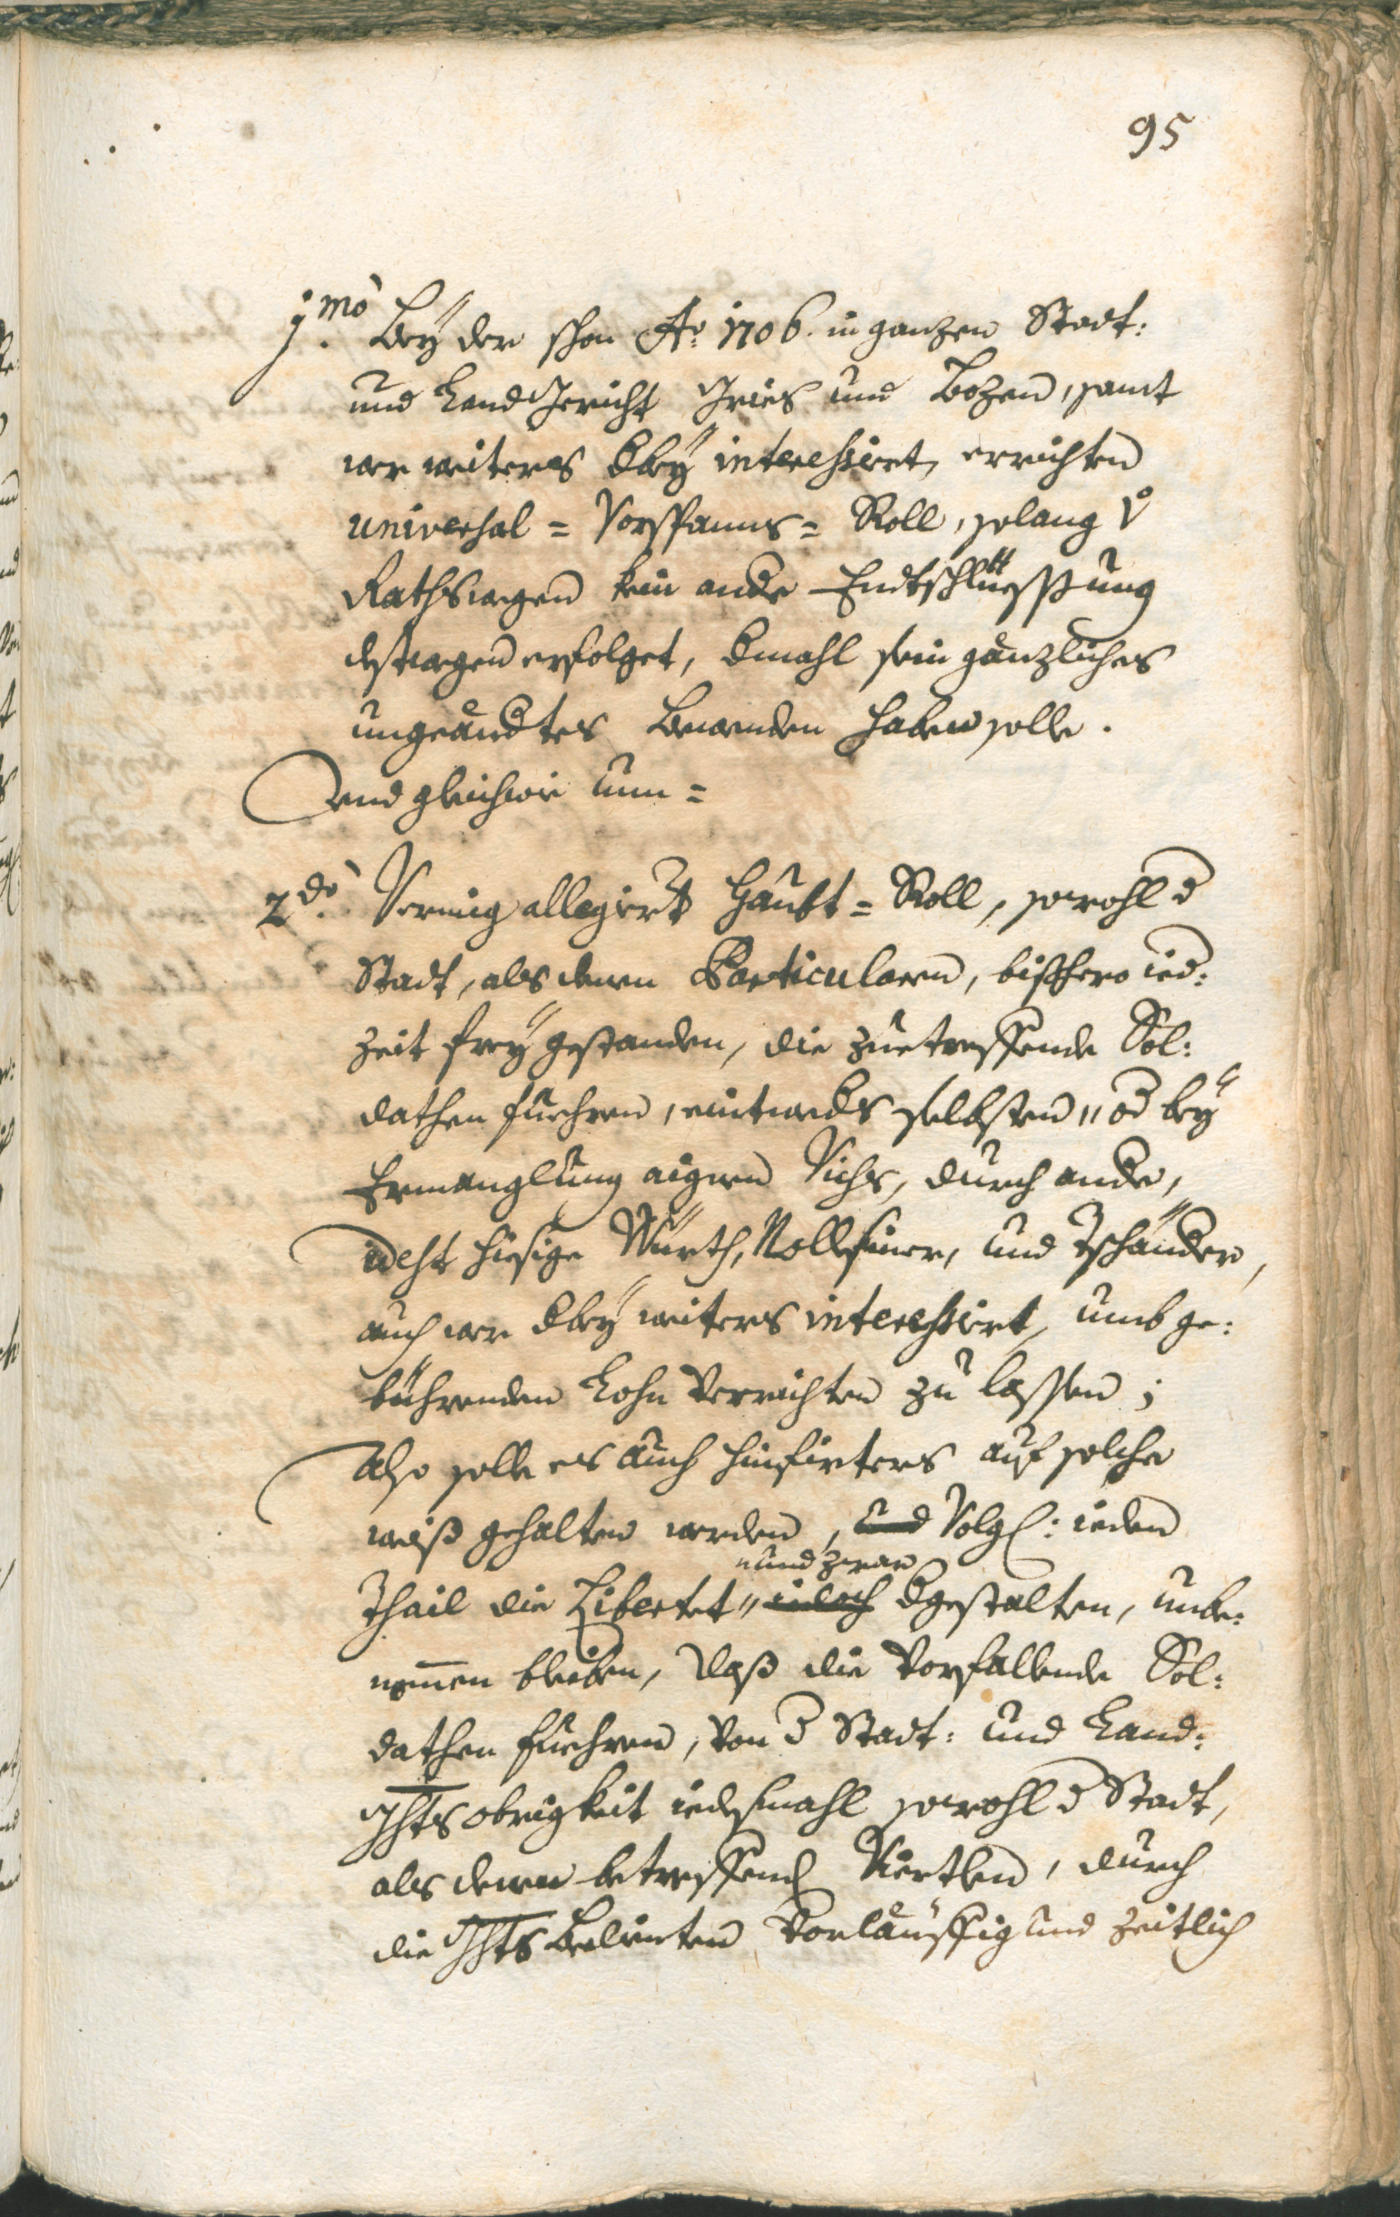 95
1.mo Bey der schon Ao: 1706. in ganzen Stadt:
und Landgericht Gries und Bozen, samt
wer weiters dbey interehsiret, errichten
univerhal = Vorspanns = Roll, solang v̊
Rathswegen kein andre Endtschlüessung
destwegen erfolget, dmahl sein gänzliches
ungeändtes bewenden haben solle.
Und gleichwie nun =
2.do Vermig allegirt Haubt = Roll, sowohl d
Stadt, als denen Particularn, bißhero ied:
zeit frey gestanden, die zuetreffende Sol:
dathen fuehren, eintweds selbsten „ od bey
Ermanglung aignen Vichs, durch andre,
idest hiesige Würth, Rollfuerer, und Tschänderer,
auch wer dbey weiters interehsirt, umb ge:
bührenden Lohn verrichten zu lassen;
Also solle es auch hinfirters auf solche
weiß gehalten werden, und Volgl: ieden
„und zwar
Thail die Libertet „ iedoch dgestalten, unbe:
nommen bleiben, daß die vorfallende Sol:
dathen fuehren, von d Stadt: und Land:
Ghts obrigkeit iedesmahl sowohl d Stadt,
als denen betreffend Viertlen, durch
die Ghts Bedienten vorläuffig und zeitlich